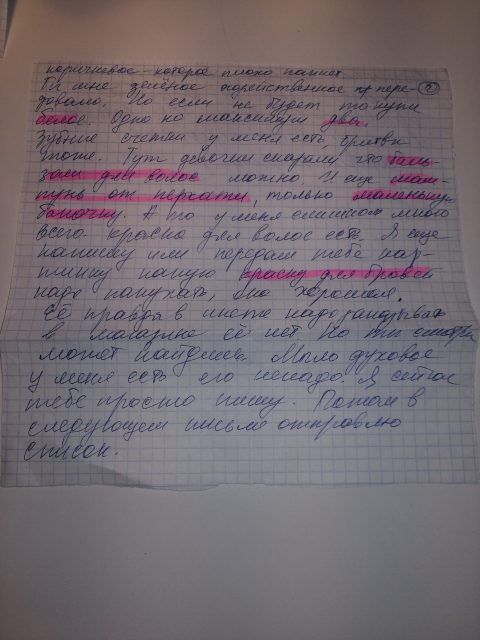 коричневое - которое плохо пахнет.
Ты мне зелёное хозяйственное пере- 2
давала. Но если не будет то купи
белое. Одно но максимум два.
Зубные счетки у меня есть, бритвы
тоже. Тут девочки сказали что баль-
зам для волос можно. И еще шам-
пунь от перхоти, только маленькую
баночку. А то у меня слишком много
всего. краска для волос есть. Я еще
напишу или передам тебе кар-
тинку какую краску для бровей
надо покупать, она хорошая.
Её правда в инете надо заказывать
в магазине её нет. Но ты смотри
может найдешь. Мыло духовое
у меня есть его ненадо. Я сейчас
тебе просто пишу. Потом в
следующем письме отправлю
список.